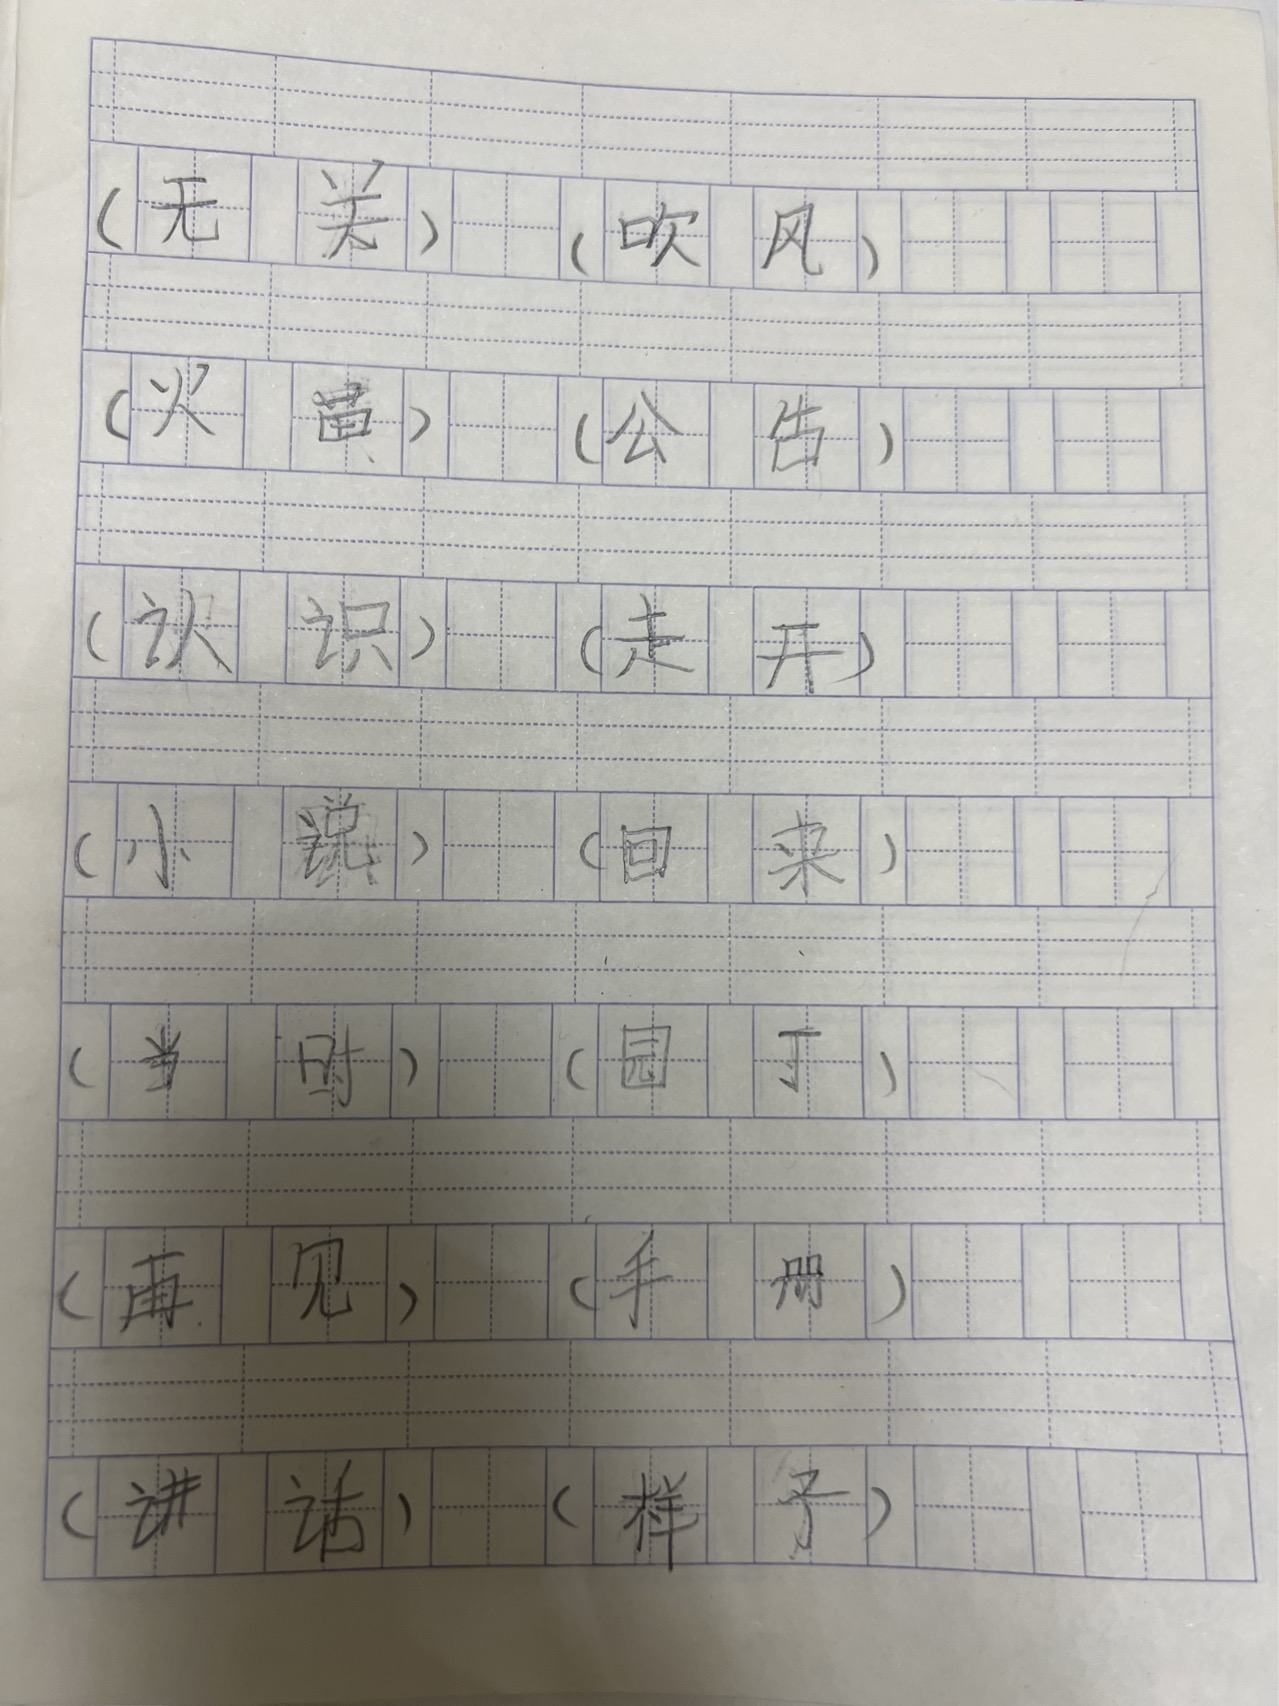 （无 关） （吹 风）
（火 苗） （公 告）
（认 识） （走 开）
（小 说） （回 来）
（当 时） （园 丁）
（再 见） （手 册）
（讲 话） （样 子）